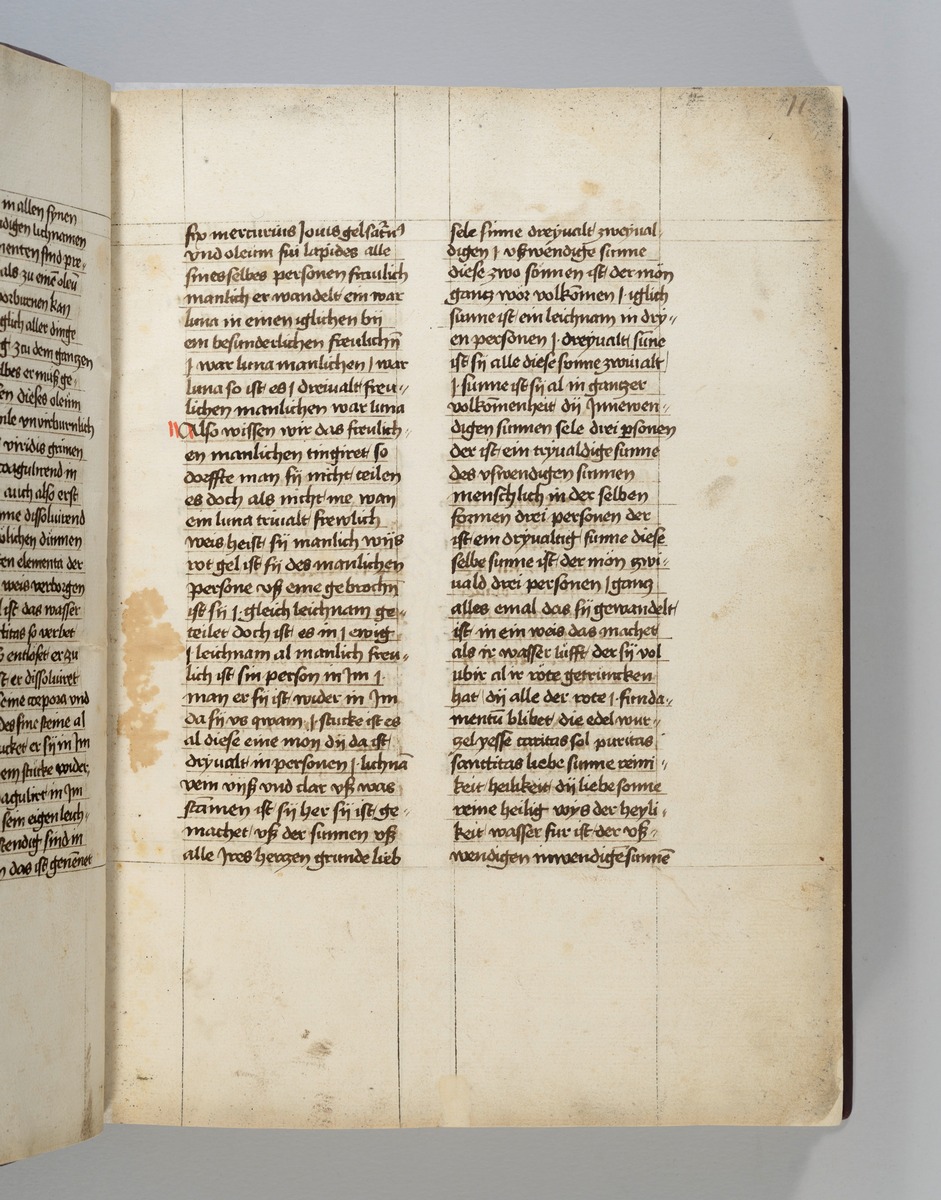 in allen synen
digen lichnamen
menten sind pre-
als zu eine oleu
vorburnen kan
glich aller dinge
g zu dem gantzen
lbes er muß ge-
en dieses oleum
mle vnuirburnlich
viridis grunen
coagulirend in
auch also erst
nne dissoluirend
olichen dunnen
en elementa der
weis verborgen
ist das wasser
titas so verbet
entloset er zu
st er dissoluiret
eme corpora vnd
des sine steine al
ucket er sij in Im
em stucke wider,
oagulirt in Im
sem eigen leich-
tendig sind in
das ist genēnet
11
mercurius Jouis gel satn9
vnd oleum sui lapides alle
sines selbes personen freulich
manlich er wandelt ein war
luna in einen iglichen bij
ein besunderlichen freulichn
j war luna manlichen j war
luna so ist es j dreiualt freu-
lichen manlichen war luna
Also wissen wir das freulich-
en manlichen tingiret so
dorffte man sij nicht teilen
es doch als nicht me wan
ein luna triualt frewlich
weis heist sij manlich wijs
rot gel ist sij des manlichen
persone vß eine gebrochn
ist sij j gleich leichnam ge-
teilet doch ist es in j ewig
j leichnam al manlich freu-
lich ist sin person in Im j
man er sij ist wider in Im
da sij vs qwam j stucke ist es
al diese eine mon dij da ist
dryualt in personen j lichnā
vem vijß vnd clar vß was
stamen ist sij her sij ist ge-
machet vß der sunnen vß
alle Ires hertzen grunde lieb
sele sinne dreyualt zweyual
digen j vßwendige sunne
diese zwo sonnen ist der mon
gantz wor volkōmen j iglich
sunne ist ein leichnam in dry-
en personen j dreyualt sune
ist sij alle diese sonne zwiualt
j sunne ist sij al in gantzer
volkōmenheit dij Innewen-
digen sunnen sele drei psonen
der ist ein tryualdige sunne
des vswendigen sunnen
menschlich in der selben
formen drei personen der
ist ein dryualtig sunne diese
selbe sunne ist der mon zwi-
uald drei personen j gantz
alles emal das sij gewandelt
ist in ein weis das machet
als ir wasser lufft der sij vol
ubir al ir rote getruncken
hat dij alle der rote j funda-
mentū blibet die edel wur-
gel yesse caritas sol puritas
sanctitas liebe sunne reini-
keit heilikeit dij liebe sonne
reine heilig wijs der heyli-
keit wasser fur ist der vß-
wendigen inwendige sunnē